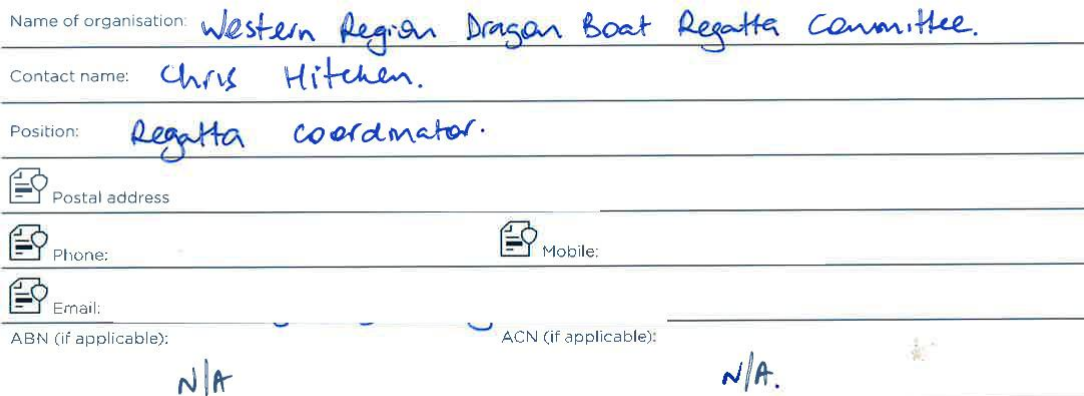 Name of organisation: Western Region Dragon Boat Regatta Committee.
Contact name: Chris Hitchen.
Position: Regatta coordinator.
Postal address
Phone: Mobile:
Email:
ABN (if applicable): ACN (if applicable):
N/A N/A.